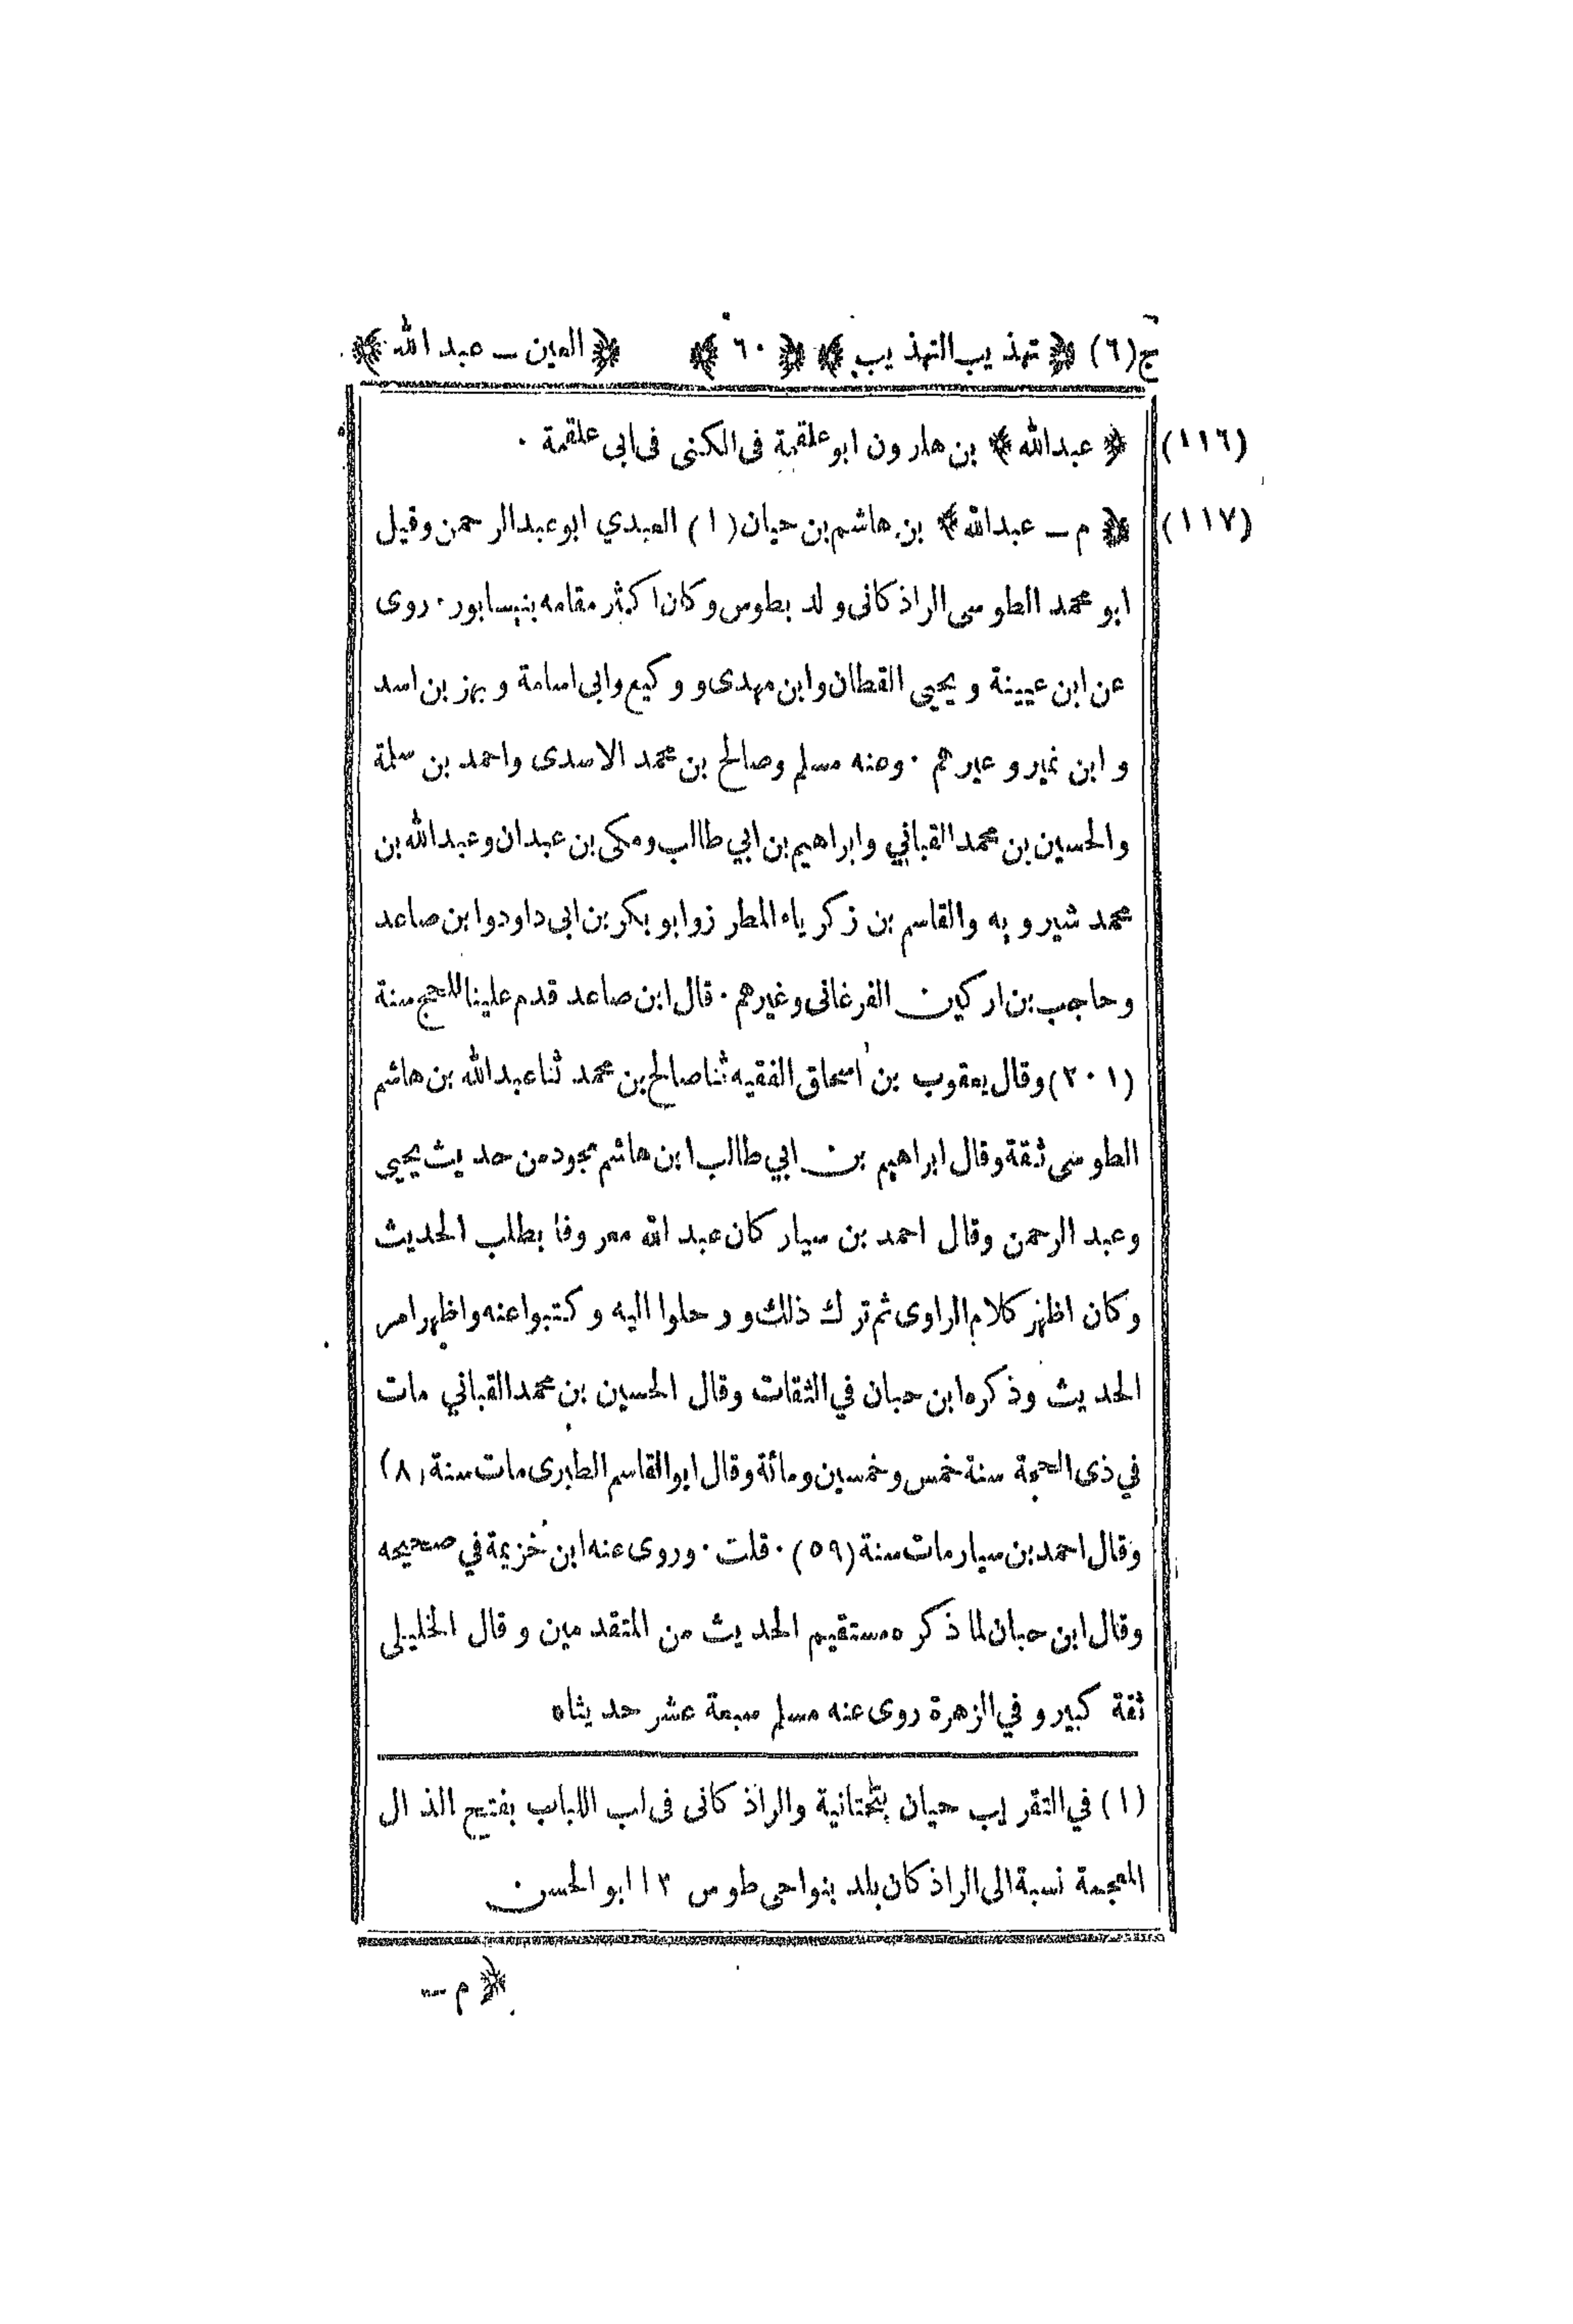 ج(٦) ﴿ تهذيب التهذيب ﴾ ﴿ ٦٠ ﴾ ﴿ العين ــ عبد الله ﴾
(١١٦) ﴿ عبدالله ﴾ بن هارون ابو علقمة فى الكنى فى ابى علقمة ٠
(١١٧) ﴿ م ــ عبدالله ﴾ بن هاشم بن حيان (١) العبدي ابو عبدالرحمن وقيل
ابو محمد الطوسى الراذكانى ولد بطوس وكان اكثر مقامه بنيسابور ٠ روى
عن ابن عيينة و يحيى القطان وابن مهدى و وكيع وابى اسامة و بهز بن اسد
و ابن نمير و غيرهم ٠ وعنه مسلم وصالح بن محمد الاسدى واحمد بن سلمة
والحسين بن محمد القباني وابراهيم بن ابي طالب ومكى بن عبدان وعبدالله بن
محمد شيرويه والقاسم بن زكرياء المطرز وابو بكر بن ابى داود وابن صاعد
وحاجب بن اركين الفرغانى وغيرهم ٠ قال ابن صاعد قدم علينا للحج سنة
(٢٠١) وقال يعقوب بن اسحاق الفقيه ثنا صالح بن محمد ثنا عبدالله بن هاشم
الطوسى ثقة وقال ابراهيم بن ابي طالب ابن هاشم مجود من حديث يحيى
وعبد الرحمن وقال احمد بن سيار كان عبد الله معروفا بطلب الحديث
وكان اظهر كلام الراوى ثم ترك ذلك و ورحلوا اليه وكتبوا عنه واظهر امر
الحديث وذكره ابن حبان في الثقات وقال الحسين بن محمد القباني مات
في ذى الحجة سنة خمس وخمسين ومائة وقال ابو القاسم الطبرى مات سنة (٨)
وقال احمد بن سيار مات سنة (٥٩) ٠ قلت ٠ وروى عنه ابن خزيمة في صحيحه
وقال ابن حبان لما ذكره مستقيم الحديث من المتقدمين وقال الخليلى
ثقة كبير و في الزهرة روى عنه مسلم سبعة عشر حديثاه
(١) في التقريب حيان بتحتانية والراذكانى فى لب اللباب بفتح الذال
المعجمة نسبة الى الراذكان بلد بنواحى طوس ١٢ ابو الحسن
﴿ م ــ